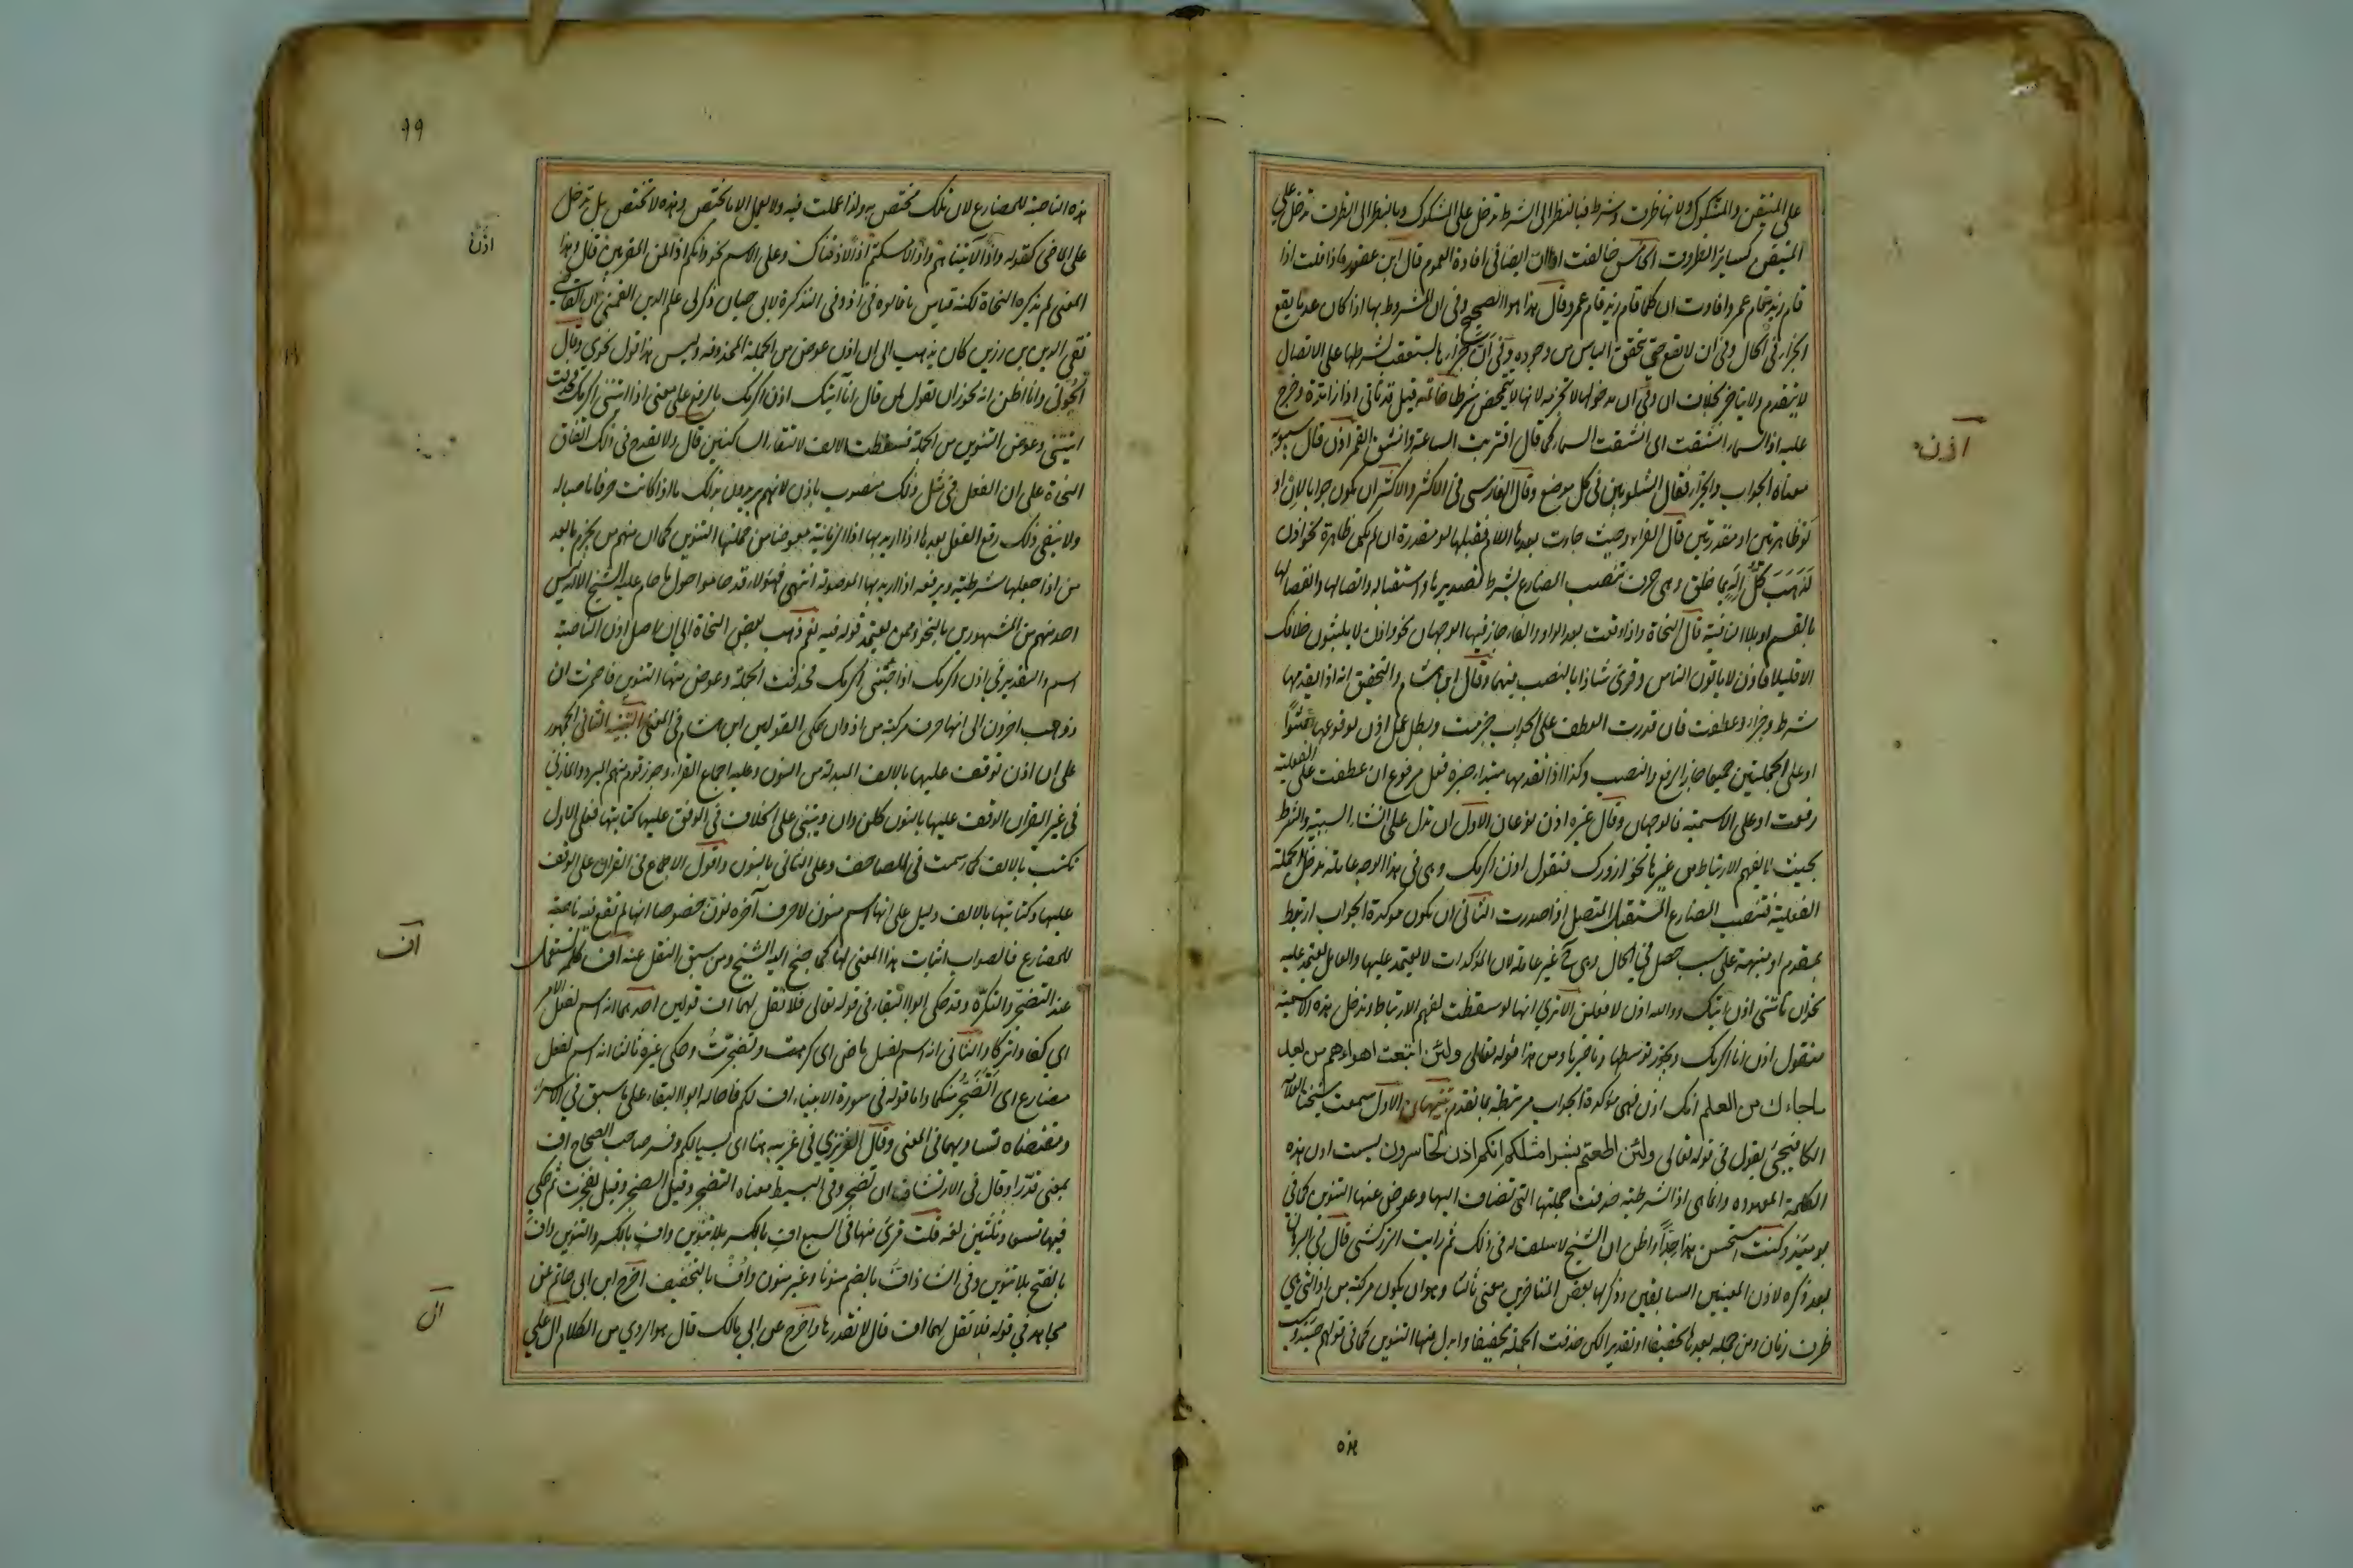 على المتيقن والمشكوك ولانها ظرف وشرط فبالنظر الى الشرط تدخل على المشكوك وبالنظر الى الظرف تدخل على
المتيقن كسائر الظروف الخامس خالفت اذا ان ايضا فى افادة العموم قال ابن عصفور فاذا قلت اذا
قام زيد قام عمرو افادت ان كلما قام زيد قام عمرو وقال هذا هو الصحيح وفى ان المشروط بها اذا كان عدما يقع
الجزاء فى الحال وفى ان لا يقع حتى يتحقق الياس من وجوده وفى ان جزاءها مستعقب لشرطها على الاتصال
لا يتقدم ولا يتاخر بخلاف ان وفى ان مدخولها لا تجزمه لانها لا تتمحض شرطا خاتمه قيل قد تاتى اذا زائدة وخرج
عليه اذا السماء انشقت اى انشقت السماء كما قال اقتربت الساعة وانشق القمر اذن قال سيبويه
معناه الجواب والجزاء فقال الشلوبين فى كل موضع وقال الفارسى فى الاكثر والاكثر ان يكون جوابا لان او
لو ظاهرتين او مقدرتين قال الفراء وحيث جاءت بعدها اللام فقبلها لو مقدرة ان لم تكن ظاهرة نحو اذن
لذهب كل اله بما خلق وهى حرف تنصب المضارع بشرط تصديرها واستقباله واتصالها وانفصالها
بالقسم او بلا النافية قال النحاة واذا وقعت بعد الواو والفاء جاز فيها الوجهان نحو واذن لا يلبثون خلافك
الا قليلا فاذن لا ياتون الناس وقرئ شاذا بالنصب فيهما وقال ابن هشام والتحقيق انه اذا تقدمها
شرط وجزاء وعطفت فان قدرت العطف على الجواب جزمت وبطل عمل اذن لوقوعها حشوا
او على الجملتين جميعا جاز الرفع والنصب وكذا اذا تقدمها مبتداء خبره فعل مرفوع ان عطفت على الفعلية
رفعت او على الاسمية فالوجهان وقال غيره اذن نوعان الاول ان تدل على انشاء السببية والشرط
بحيث لا يفهم الارتباط من غيرها نحو ازورك فتقول اذن اكرمك وهى فى هذا الوجه عاملة تدخل الجملة
الفعلية فتنصب المضارع المستقبل المتصل اذا صدرت الثانى ان تكون موكدة لجواب ارتبط
بمقدم او منبهة على سبب حصل فى الحال وهى ح غير عاملة لان المؤكدات لا يعتمد عليها والعامل يعتمد عليه
نحو ان تاتنى اذن اتيك ووالله اذن لافعلن الا ترى انها لو سقطت لفهم الارتباط وتدخل هذه الاسمية
فتقول اذن انا اكرمك ويجوز توسطها وتاخرها ومن هذا قوله تعالى ولئن اتبعت اهواءهم من بعد
ماجاءك من العلم انك اذن فهى مؤكدة لجواب مرتبطة بما تقدم تنبيهان الاول سمعت شيخنا العلامة
الكافيجى يقول فى قوله تعالى ولئن اطعتم بشرا مثلكم انكم اذن لخاسرون ليست اذن هذه
الكلمة المعهوده وانما هى اذا الشرطية حذفت جملتها التى تضاف اليها وعوض عنها التنوين كما فى
يومئذ وكنت استحسن هذا جدا واظن ان الشيخ لا سلف له فى ذلك ثم رايت الزركشى قال فى البرهان
بعد ذكره لاذن المعنيين السابقين وذكر لها بعض المتاخرين معنى ثالثا وهو ان يكون مركبة من اذ التى هى
ظرف زمان ومن جملة بعدها تحقيقا او تقديرا لكن حذفت الجملة تخفيفا وابدل منها التنوين كما فى قولهم حينئذ وليست
اذن
هذه
٩٩
هذه الناصبة للمضارع لان تلك تختص به ولذا عملت فيه ولا يعمل الا ما يختص وهذه لا تختص بل تدخل
على الماضى كقوله واذا لاتيناهم واذا لامسكتم اذا لاذقناك وعلى الاسم نحو وانكم اذا لمن المقربين ثم قال وهذا
المعنى لم يذكره النحاة لكنه قياس ما قالوه فى اذ وفى التذكرة لابى حيان ذكر لى علم الدين القمنى ان القاضى
تقى الدين بن رزين كان يذهب الى ان اذن عوض من الجملة المحذوفه وليس هذا قول نحوى وقال
الخوئى وانا اظن انه يجوز ان تقول لمن قال انا اتيك اذن اكرمك بالرفع على معنى اذا اتيتنى اكرمك فحذفت
اتيتنى وعوض التنوين من الجملة فسقطت الالف لالتقاء الساكنين قال ولا يقدح فى ذلك اتفاق
النحاة على ان الفعل فى مثل ذلك منصوب باذن لانهم يريدون بذلك ما اذا كانت حرفا ناصبا له
ولا ينفى ذلك رفع الفعل بعدها اذا اريد بها اذا الزمانية معوضا من جملتها التنوين كما ان منهم من يجزم ما بعد
من اذا جعلها شرطية ويرفعه اذا اريد بها الموصولة انتهى فهولاء قد حاموا حول ما حام عليه الشيخ الا انه ليس
احد منهم من المشهورين بالنحو وممن يعتمد قوله فيه نعم ذهب بعض النحاة الى ان اصل اذن الناصبة
اسم والتقدير فى اذن اكرمك اذا جئتنى اكرمك فحذفت الجملة وعوض منها التنوين فاضمرت ان
وذهب اخرون الى انها حرف مركبة من اذ وان حكى القولين ابن هشام فى المغنى التنبيه الثانى الجمهور
على ان اذن توقف عليها بالالف المبدلة من النون وعليه اجماع القراء وجوز قوم منهم المبرد والمازنى
فى غير القران الوقف عليها بالنون كلن وان وينبنى على الخلاف فى الوقف عليها كتابتها فعلى الاول
تكتب بالالف كما رسمت فى المصاحف وعلى الثانى بالنون واقول الاجماع فى القران على الوقف
عليها وكتابتها بالالف دليل على انها اسم منون لا حرف آخره نون خصوصا انها لم تقع فيه ناصبة
للمضارع فالصواب اثبات هذا المعنى لها كما جنح اليه الشيخ ومن سبق النقل عنه اف كلمة تستعمل
عند التضجر والتكره وقد حكى ابو البقاء فى قوله تعالى فلا تقل لهما اف قولين احدهما انه اسم لفعل الامر
اى كفا واتركا والثانى انه اسم لفعل ماض اى كرهت وتضجرت وحكى غيره ثالثا انه اسم لفعل
مضارع اى اتضجر منكما واما قوله فى سورة الانبياء اف لكم فاحاله ابو البقاء على ما سبق فى الاسراء
ومقتضاه تساويهما فى المعنى وقال العزيزى فى غريبه هنا اى بئسا لكم وفسر صاحب الصحاح اف
بمعنى قذرا وقال فى الارتشاف اف تضجر وفى البسيط معناه التضجر وقيل الضجر وقيل تضجرت ثم حكى
فيها تسعا وثلثين لغه قلت قرئ منها فى السبع اف بالكسر بلا تنوين واف بالكسر والتنوين واف
بالفتح بلا تنوين وفى الشاذ اف بالضم منونا وغير منون واف بالتخفيف اخرج ابن ابى حاتم عن
مجاهد فى قوله فلا تقل لهما اف قال لا تقذرهما واخرج عن ابى مالك قال هو الردى من الكلام ال على
اذن
اف
ال